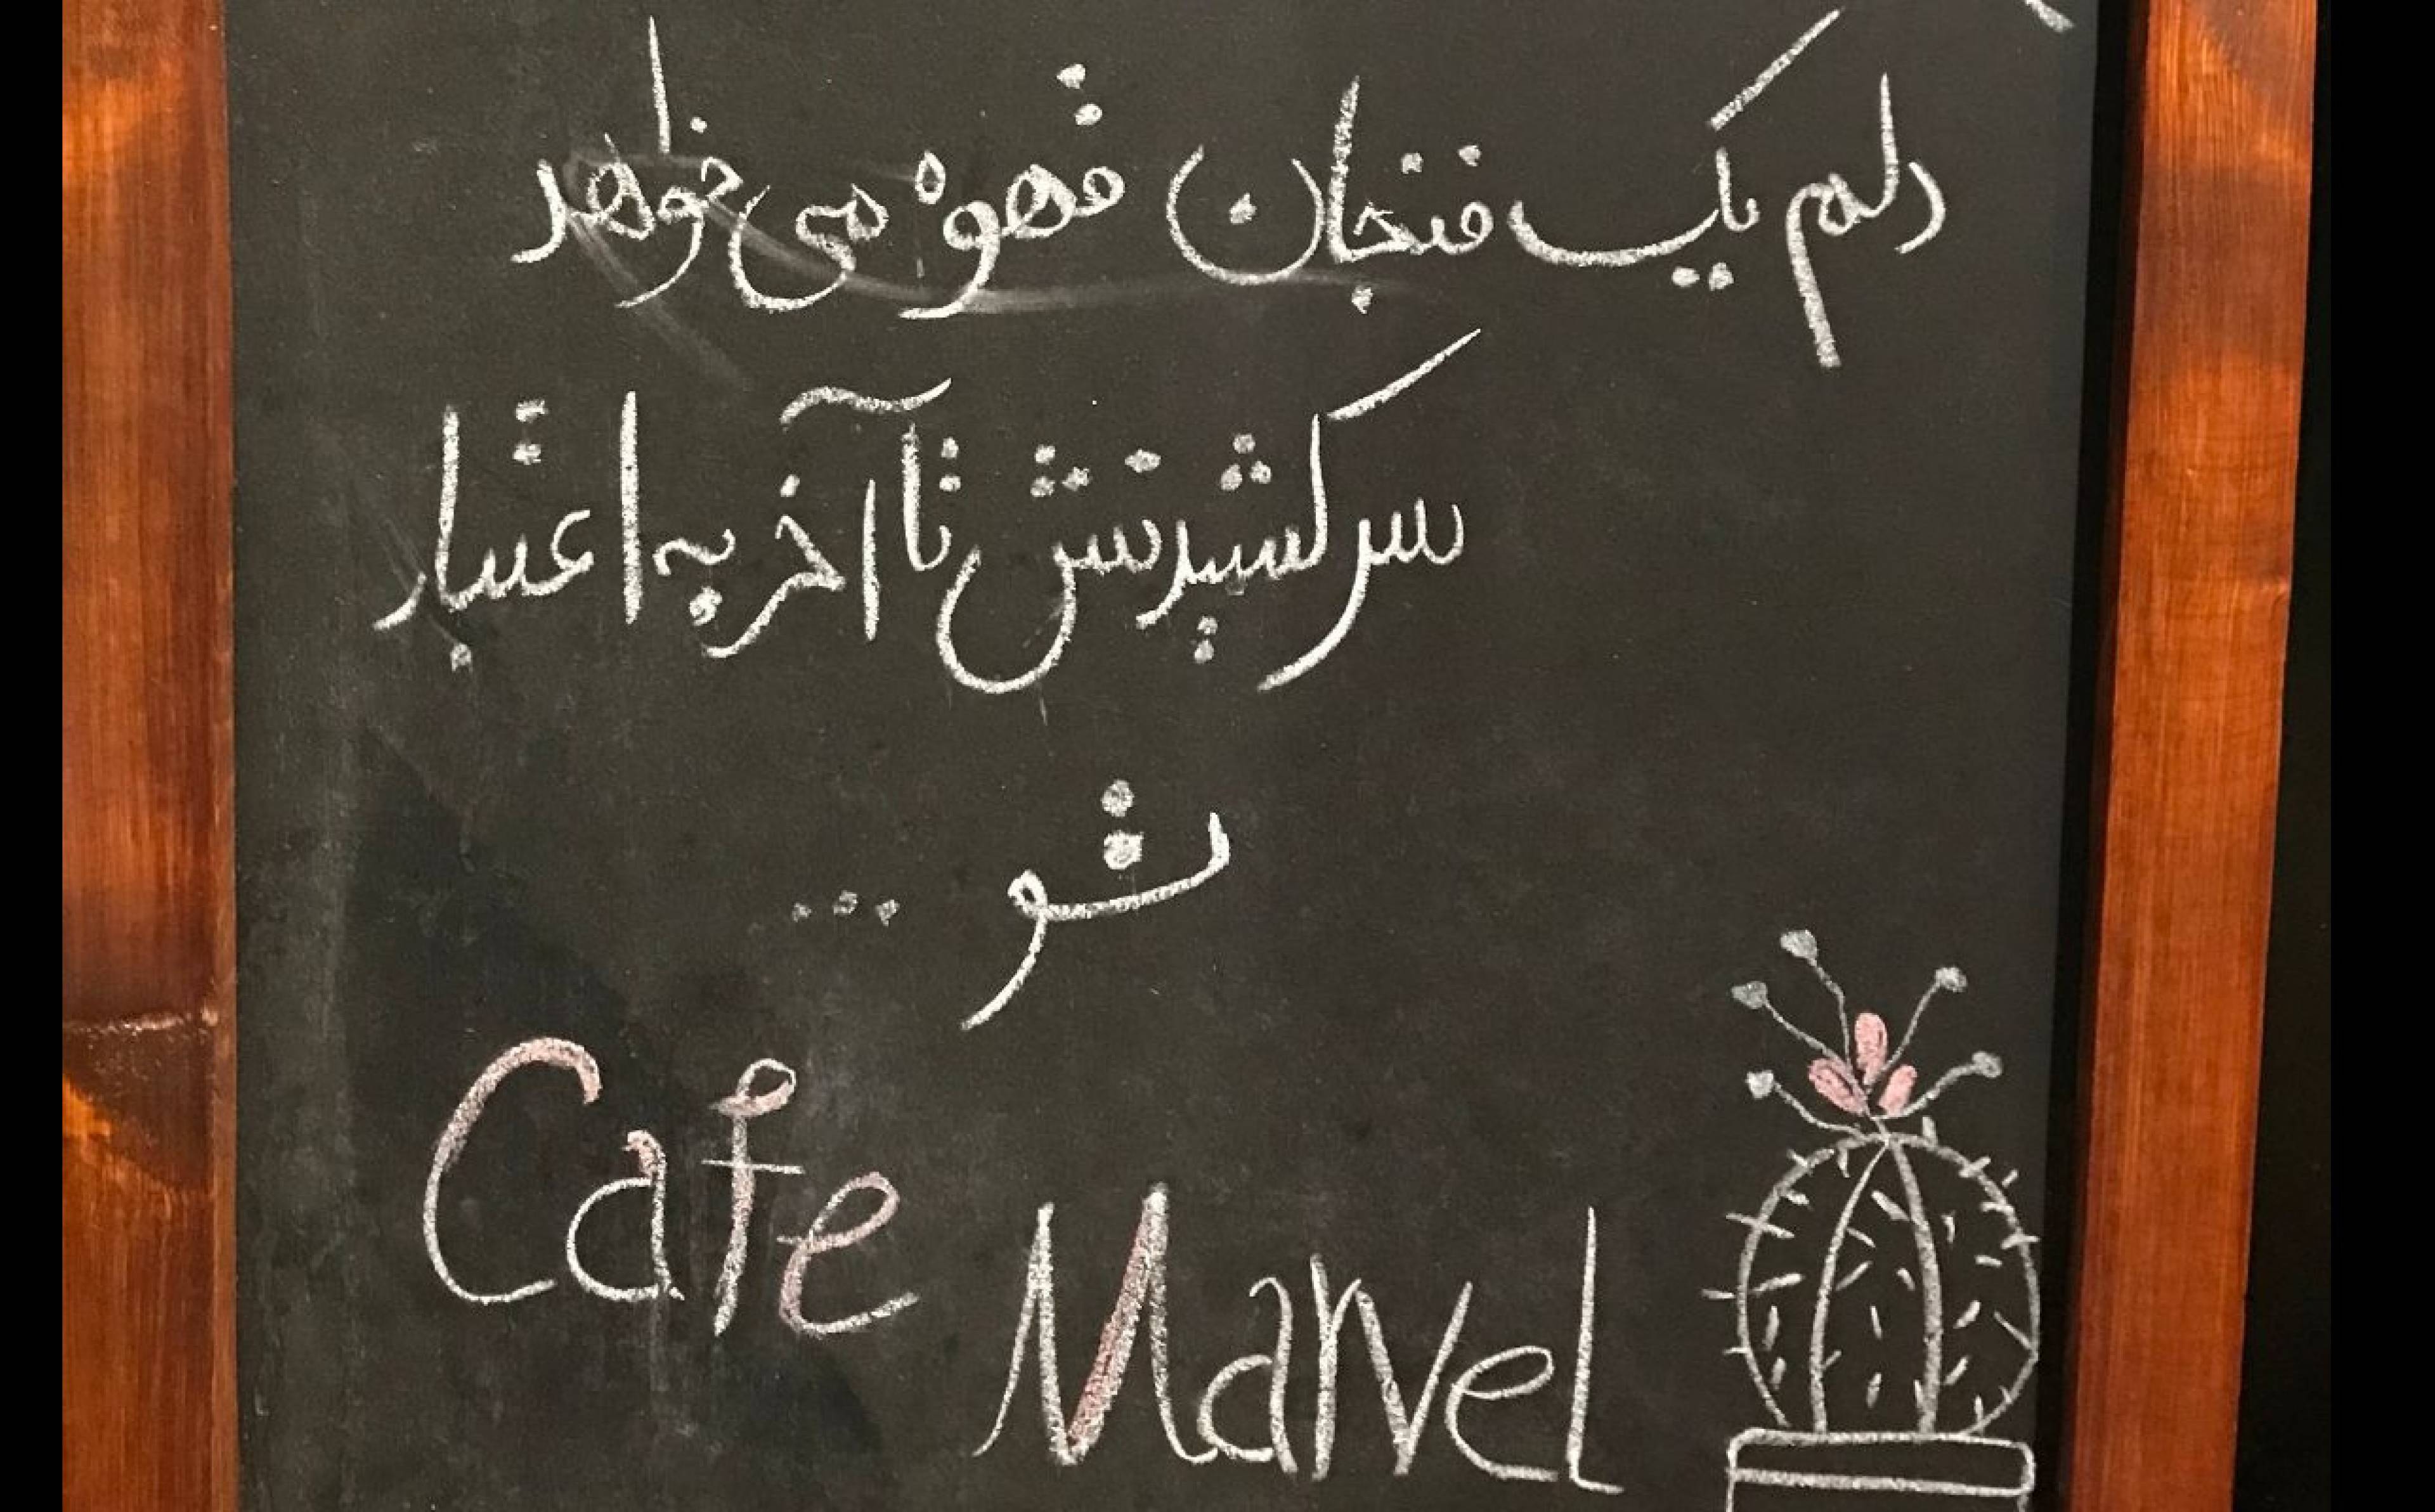 دلم یک فنجان قهوه می خواهد
سر کشیدنش تا آخر به اعتبار
تو ...
Cafe
Marvel